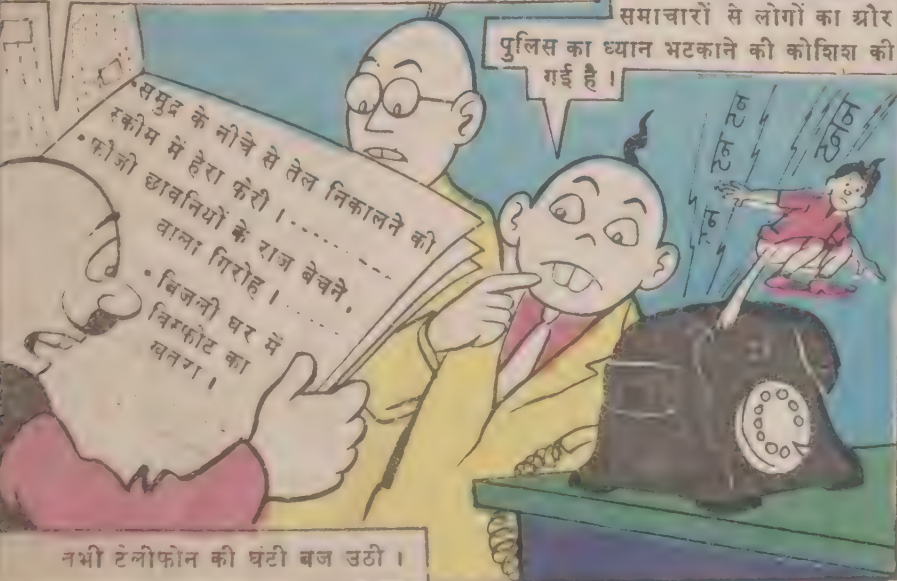 समाचारों से लोगों का और
पुलिस का ध्यान भटकाने की कोशिश की
गई है।
• समुद्र के नीचे से तेल निकालने की
स्कीम में हेरा फेरी।........
• फौजी छावनियों के राज बेचने
वाला गिरोह।........
• बिजली घर में
विस्फोट का
खतरा।
टन टन टन
छनान
तभी टेलीफोन की घंटी बज उठी।